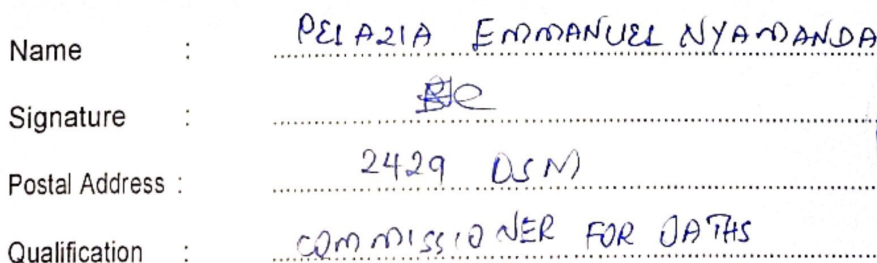 Name : PELAZIA EMMANUEL NYAMANDA
Signature :
Postal Address : 2429 DSM
Qualification : COMMISSIONER FOR OATHS